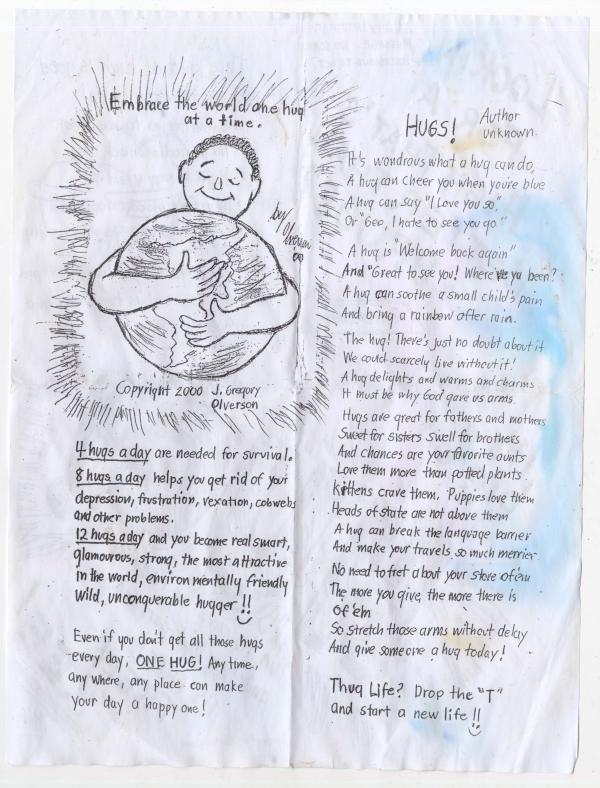 Embrace the world one hug
at a time.
by
Copyright 2000 J. Gregory
Olverson
4 hugs a day are needed for survival.
8 hugs a day helps you get rid of your
depression, frustration, vexation, cobwebs
and other problems.
12 hugs a day and you become real smart,
glamourous, strong, the most attractive
in the world, environmentally friendly
wild, unconquerable hugger !!
Even if you don't get all those hugs
every day, ONE HUG! Any time,
any where, any place can make
your day a happy one!
HUGS!
Author
unknown.
It's wondrous what a hug can do,
A hug can cheer you when you're blue
A hug can say "I Love you so,"
Or "Gee, I hate to see you go"
A hug is "Welcome back again"
And "Great to see you! Where ya been?
A hug can soothe a small child's pain
And bring a rainbow after rain.
The hug! There's just no doubt about it
We could scarcely live without it!
A hug delights and warms and charms
It must be why God gave us arms.
Hugs are great for fathers and mothers
Sweet for sisters swell for brothers
And chances are your favorite aunts
Love them more than potted plants.
Kittens crave them, Puppies love them
Heads of state are not above them
A hug can break the language barrier
And make your travels so much merrier
No need to fret about your store of 'em
The more you give, the more there is
of 'em
So stretch those arms without delay
And give someone a hug today!
Thug Life? Drop the "T"
and start a new life !!